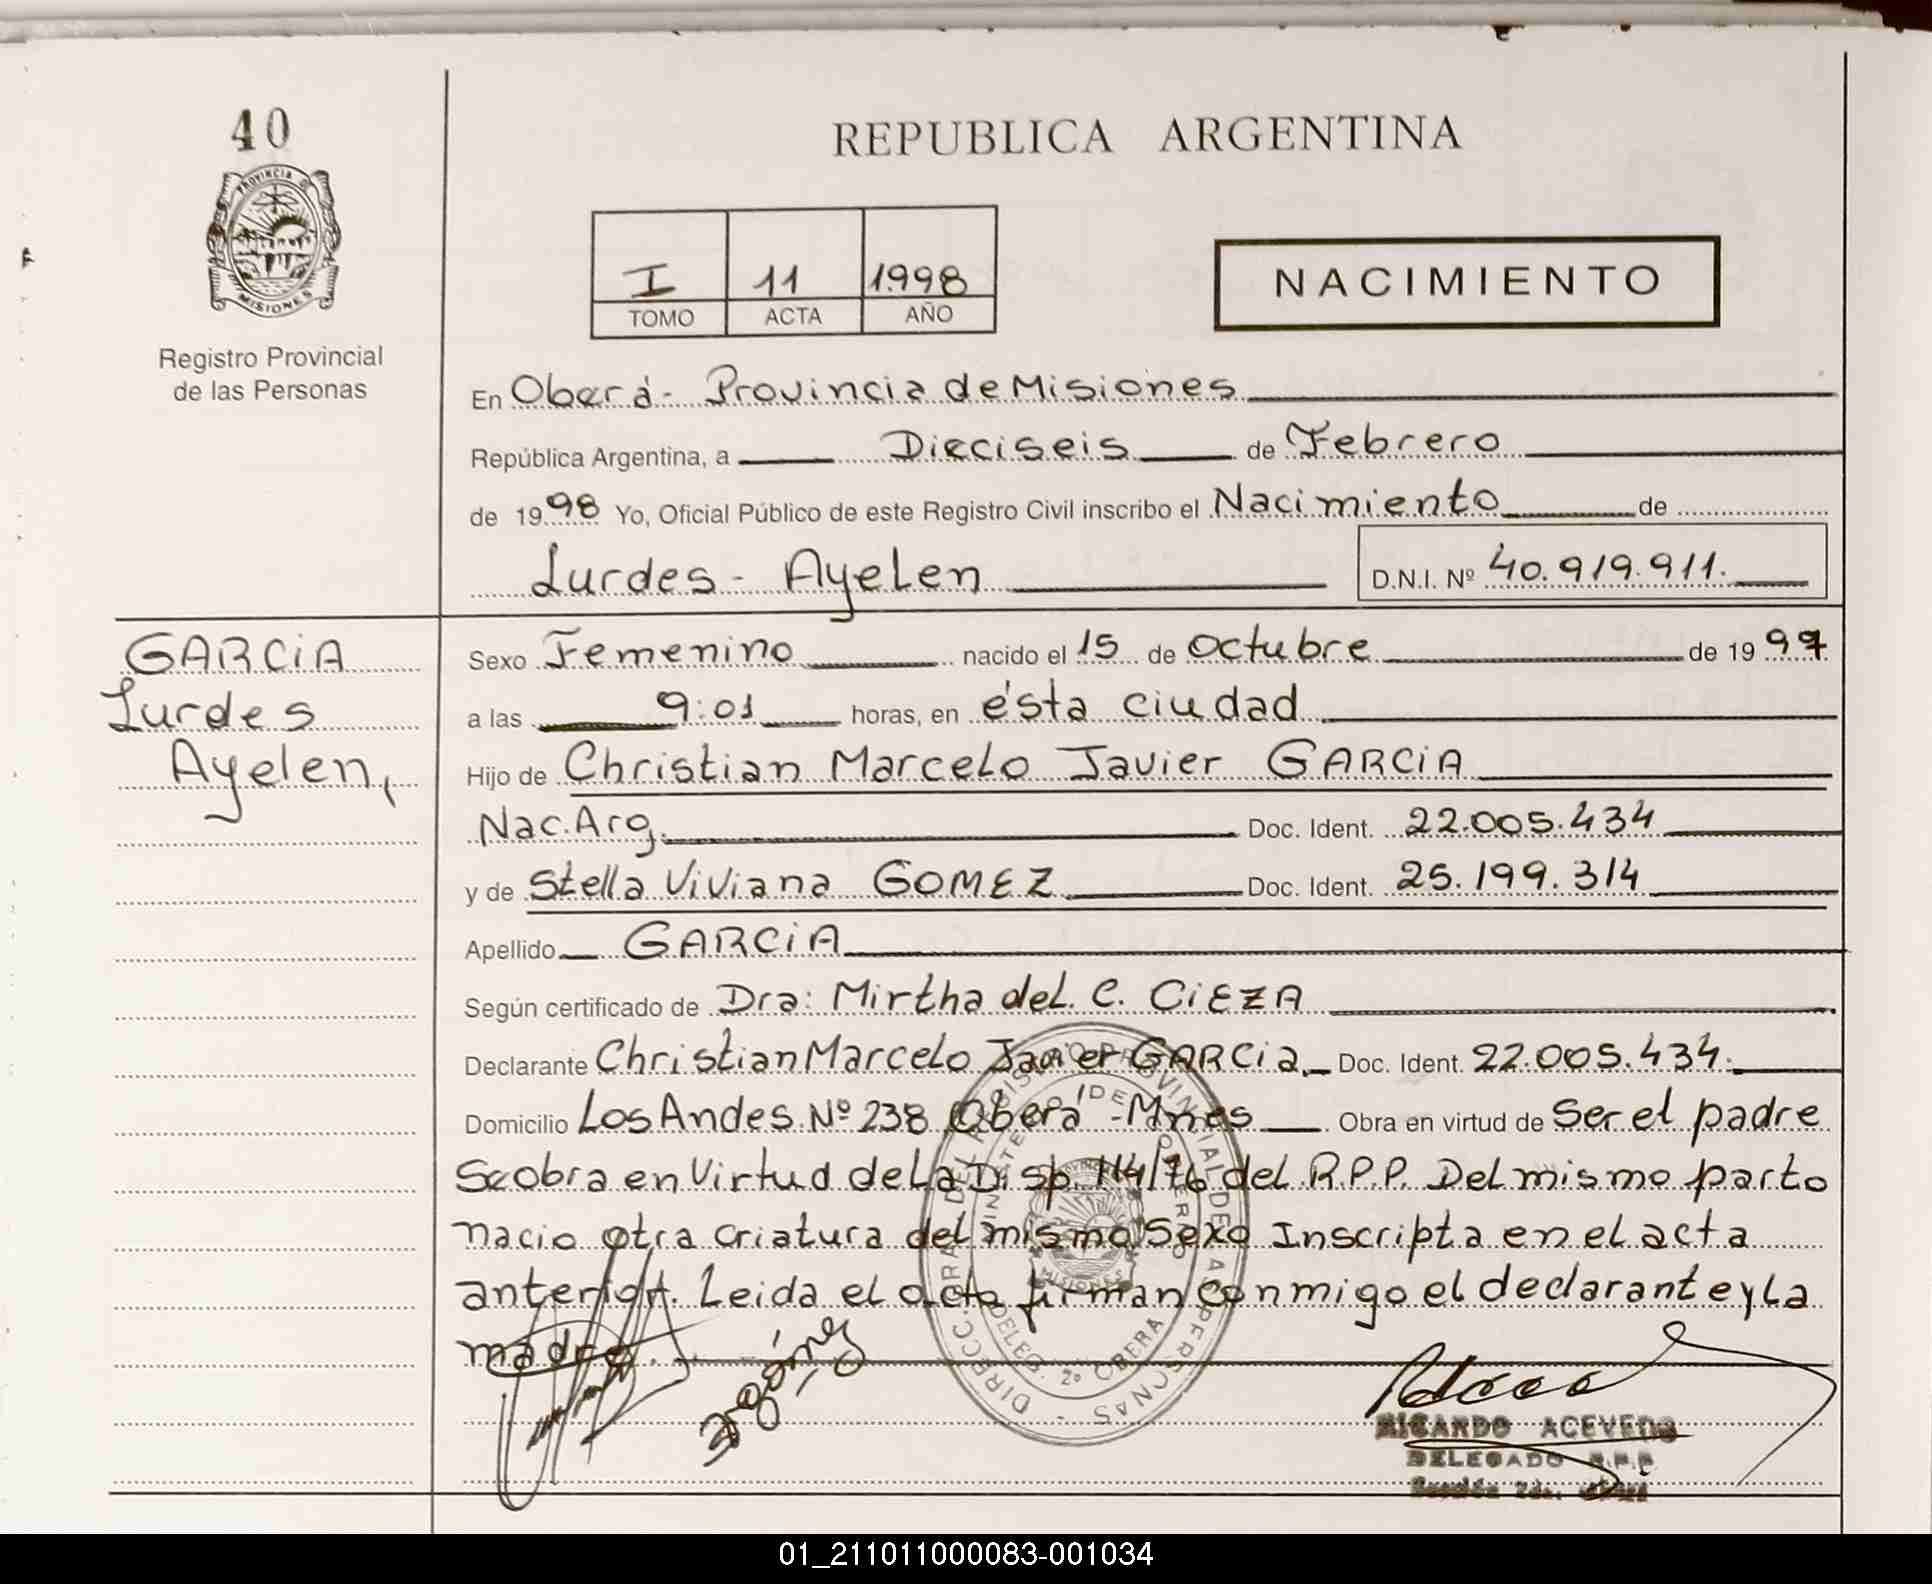 40
PROVINCIA D
MISIONES
Registro Provincial
de las Personas
REPUBLICA ARGENTINA
I 11 1.998
TOMO ACTA AÑO
NACIMIENTO
En Oberá - Provincia de Misiones
República Argentina, a Dieciseis de Febrero
de 1998 Yo, Oficial Público de este Registro Civil inscribo el Nacimiento de
Lurdes - Ayelen D.N.I. Nº 40.919.911.
GARCiA
Lurdes
Ayelen,
Sexo Femenino nacido el 15 de Octubre de 1997
a las 9:01 horas, en ésta ciudad
Hijo de Christian Marcelo Javier GARCiA
Nac. Arg. Doc. Ident. 22.005.434
y de Stella Viviana GOMEZ Doc. Ident. 25.199.314
Apellido GARCiA
Según certificado de Dra: Mirtha del. C. CiEZA
Declarante Christian Marcelo Javier GARCia. Doc. Ident. 22.005.434.
Domicilio Los Andes Nº 238 Oberá - Mnes Obra en virtud de Ser el padre
Se obra en Virtud de La Disp. 114/76 del R.P.P. Del mismo parto
nacio otra criatura del mismo Sexo Inscripta en el acta
anterior. Leida el acta firman conmigo el declarante y La
madre.
DELEG. 2º OBERA
MISIONES
RICARDO ACEVEDO
DELEGADO R.P.P
01_211011000083-001034